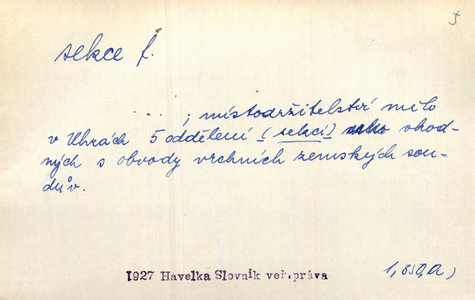 sekce f.
...; místodržitelství mělo
v Uhrách 5 oddělení (sekcí) shod-
ných s obvody vrchních zemských sou-
dův.
1927 Havelka Slovník veř.práva